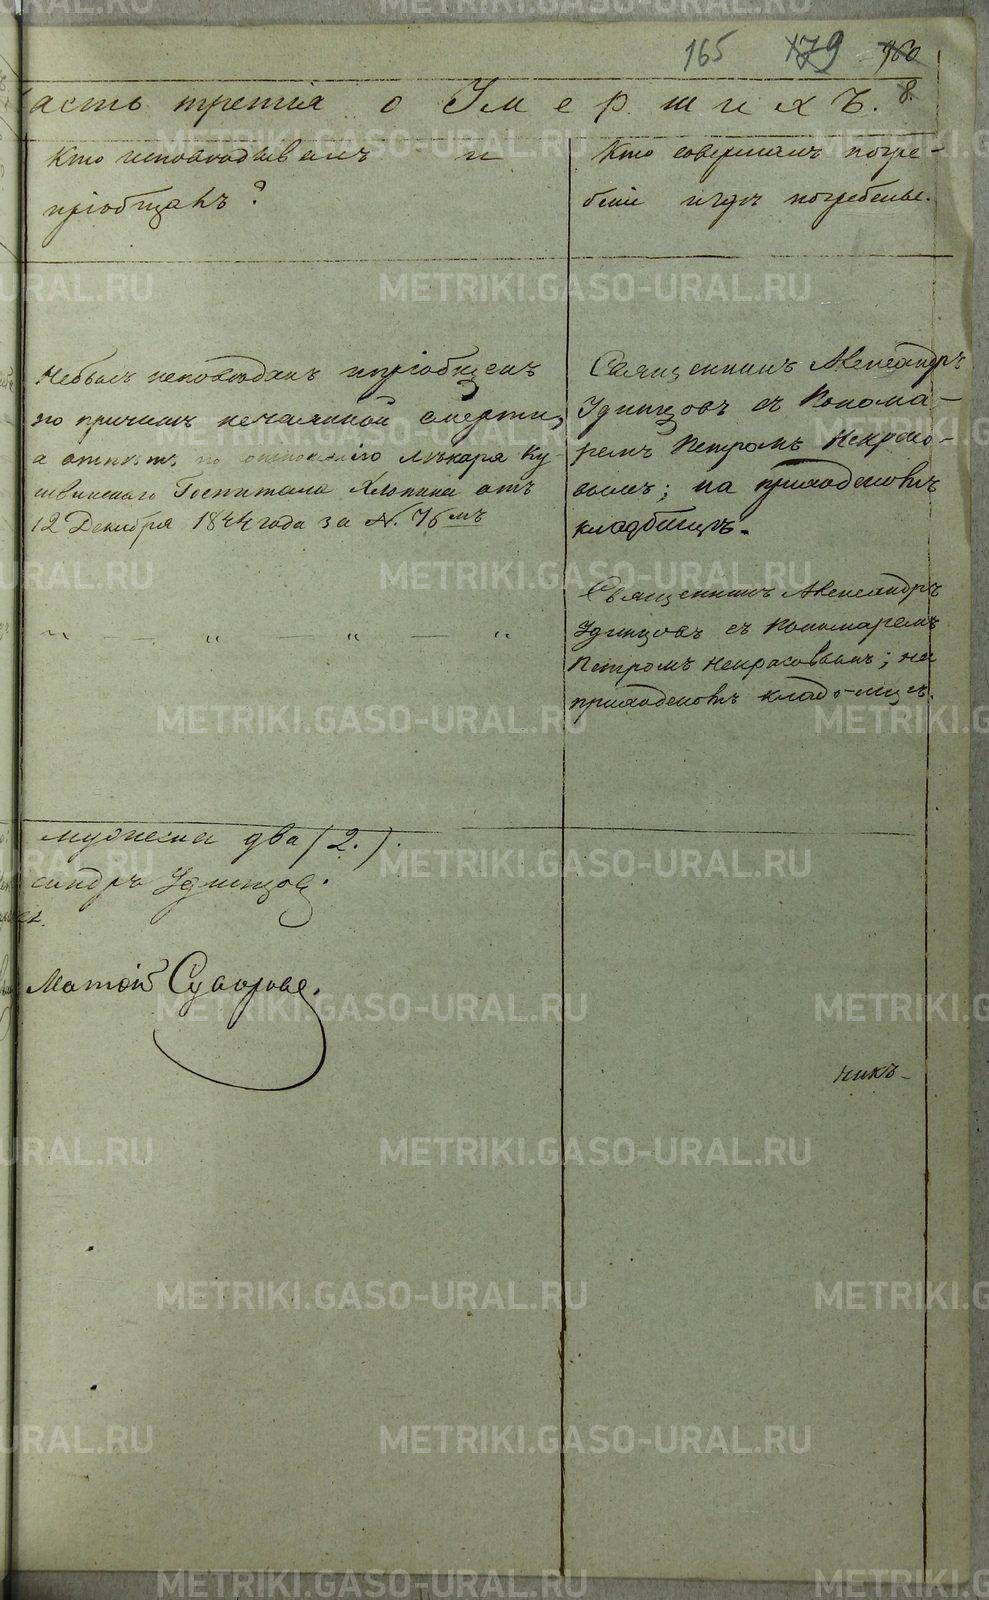 165 179 160
асть третія о Умершихъ. 8.
Кто исповѣдывалъ и
пріобщалъ?
Кто совершалъ погре-
беніе и гдѣ погребены.
Небылъ исповѣданъ и пріобщенъ
по причинѣ нечаянной смерти,
а отпѣтъ по отношенію лѣкаря Ку-
швинскаго Госпиталя Хлопина отъ
12 Декабря 1844 года за №. 76мъ
Священникъ Александръ
Удинцовъ съ Понома-
ремъ Петромъ Некрасо-
вымъ; на приходскомъ
кладбищѣ.
„ — „ — „ — „
Священникъ Александръ
Удинцовъ съ Пономаремъ
Петромъ Некрасовымъ; на
приходскомъ кладбищѣ.
мужеска два (2.).
сандръ Удинцовъ.
Матѳій Суворовъ.
никъ
METRIKI.GASO-URAL.RU